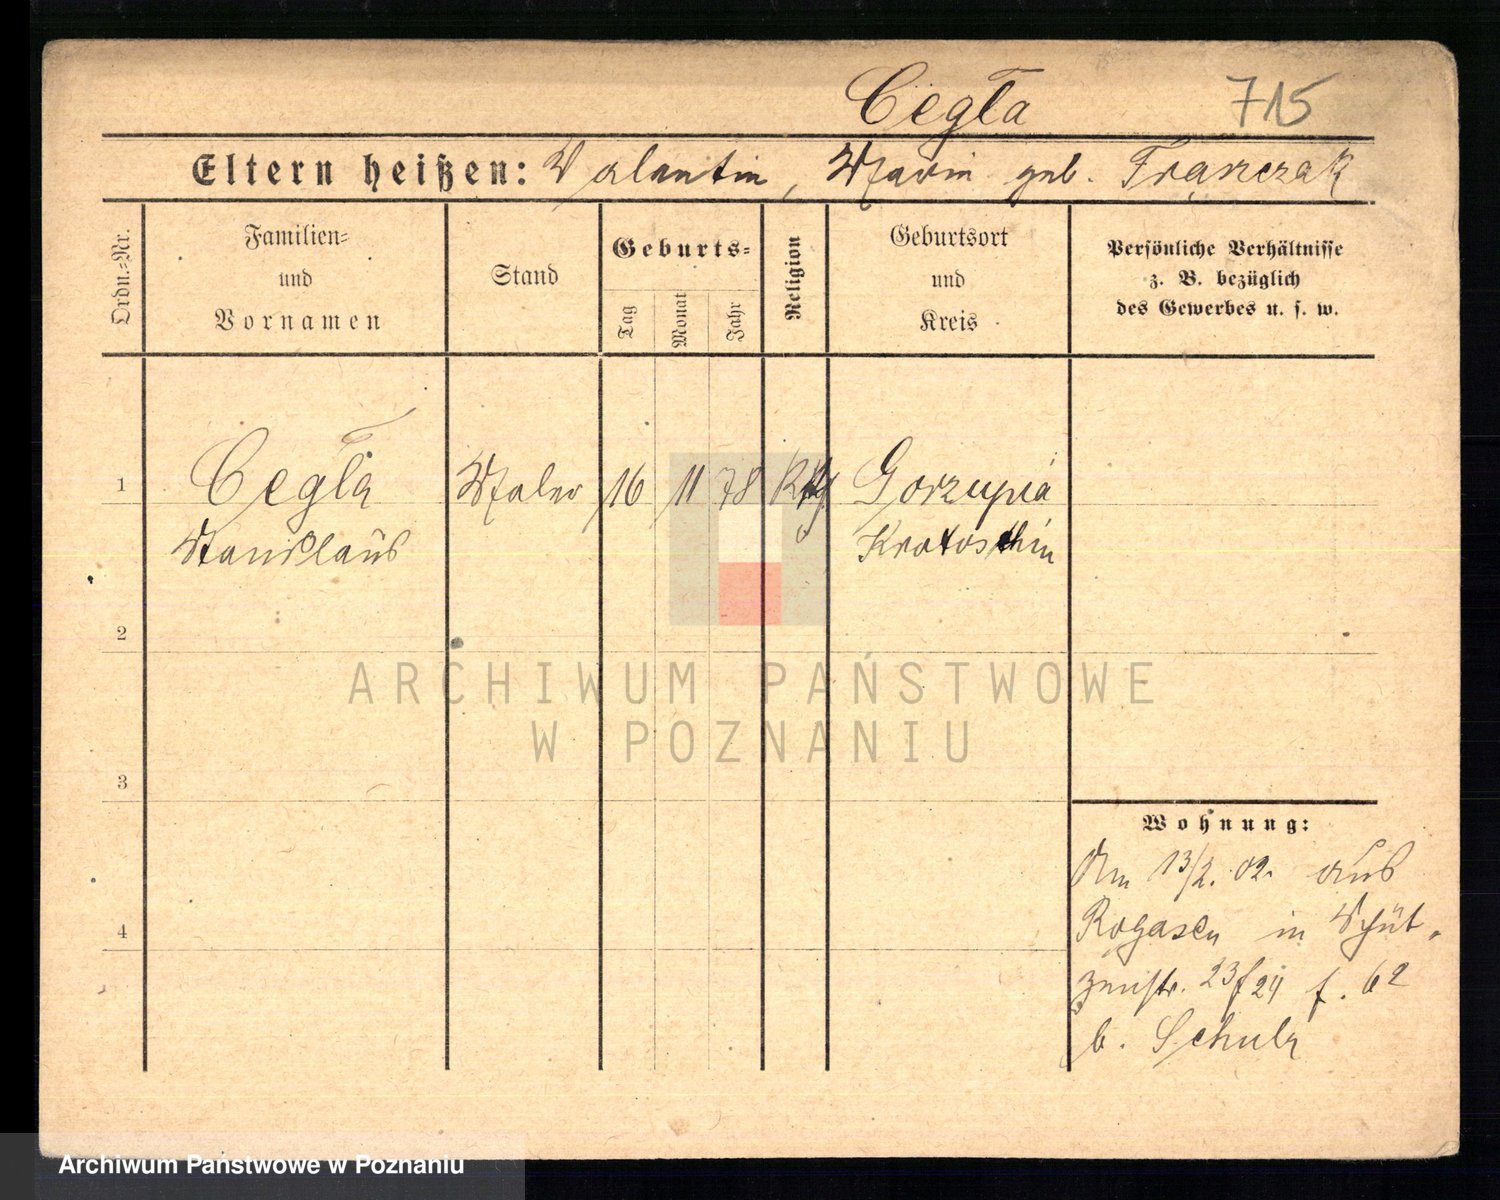 Cegła 715
Eltern heißen: Valentin, Marie geb. Franczak
Ordn.-Nr.
Familien-
und
Vornamen
Stand
Geburts-
Tag
Monat
Jahr
Religion
Geburtsort
und
Kreis
Persönliche Verhältnisse
z. B. bezüglich
des Gewerbes u. s. w.
1 Cegła Maler 16 11 78 Gorzupia
Stanislaus Krotoschin
2
3
4
Wohnung:
Am 13/2. 02. aus
Rogasen in Schüt-
zenstr. 23/24 f. 62
b. Schulz
ARCHIWUM PAŃSTWOWE
W POZNANIU
Archiwum Państwowe w Poznaniu